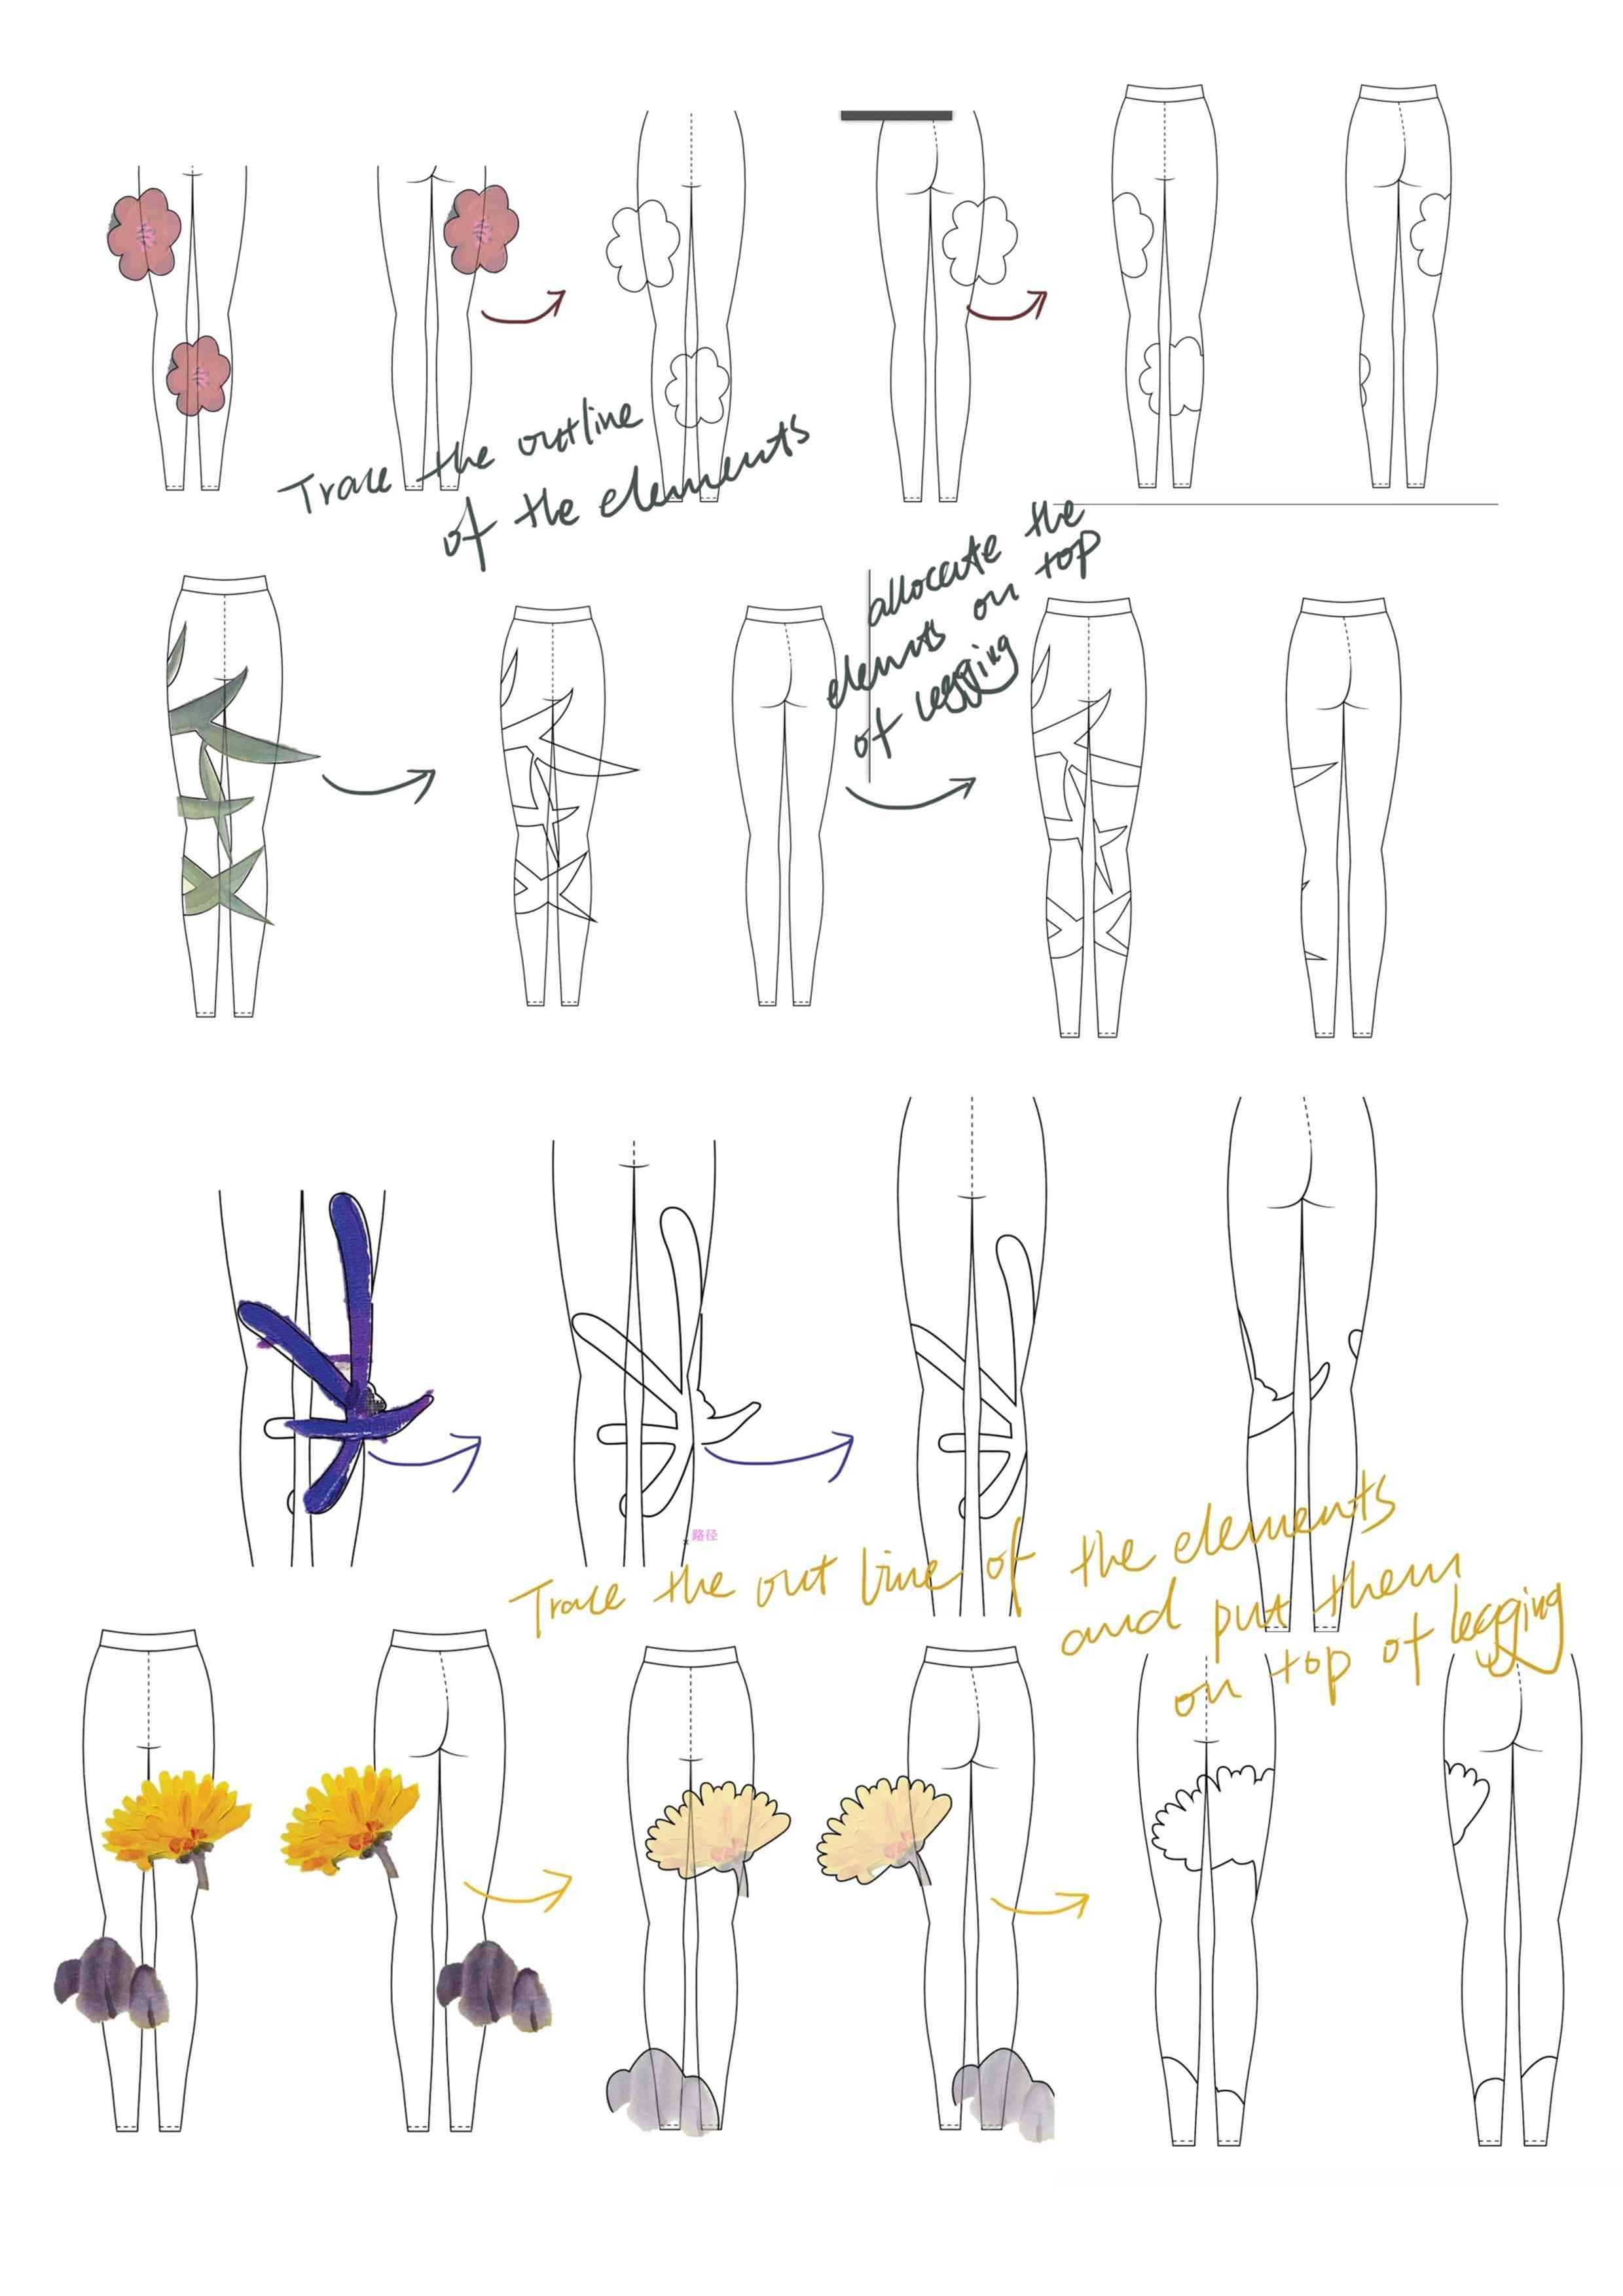 Trace the outline
of the elements
allocate the
elemnts on top
of legging
路径
Trace the out line of the elements
and put them
on top of legging